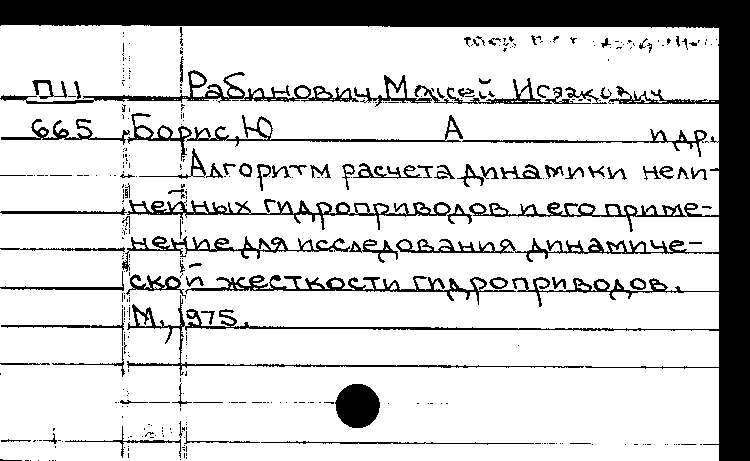 П11 Рабинович, Моисей Исаакович
665 Борис, Ю А и др.
Алгоритм расчета динамики нели-
нейных гидроприводов и его приме-
нение для исследования динамиче-
ской жесткости гидроприводов.
М., 1975.